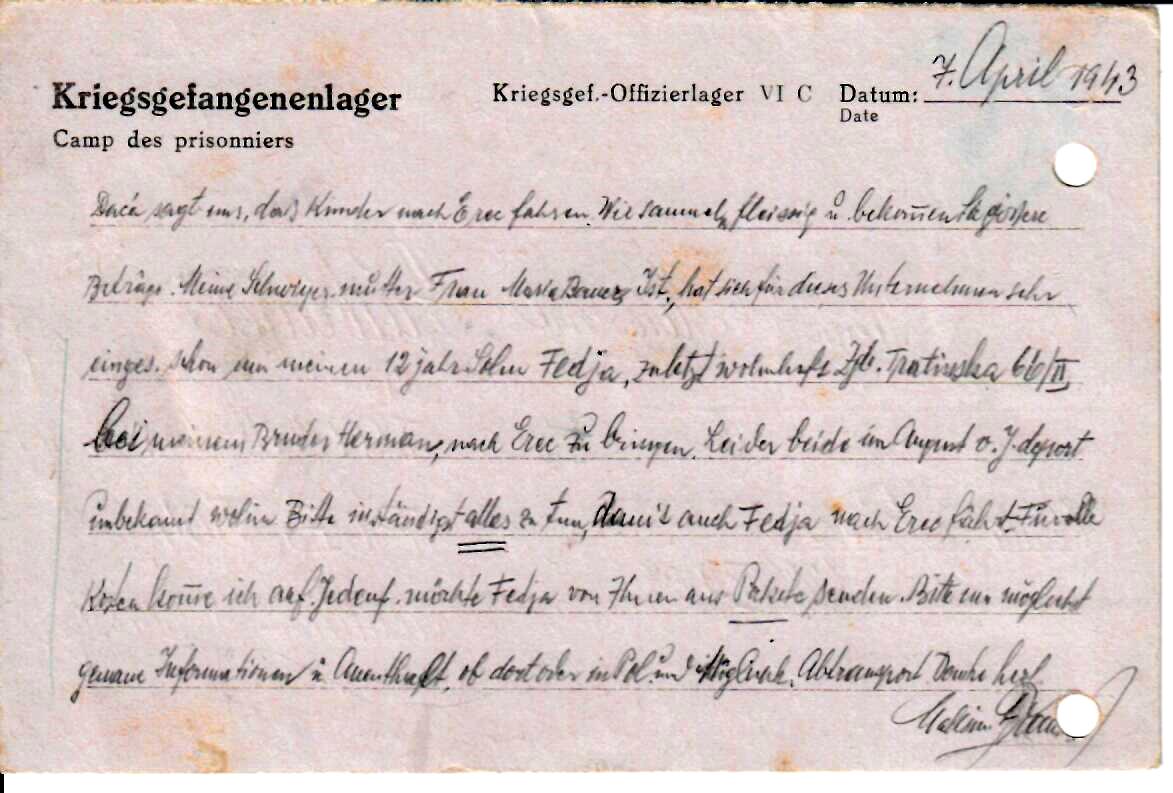 Kriegsgefangenenlager Kriegsgef.-Offizierlager VI C Datum: 7. April 1943
Camp des prisonniers Date
sagt uns, daß Kinder nach Erec fahren. Wir sammeln fleissig u. bekommen größere
Beträge. Meine Schwiegermutter Frau Maria Bauer, Ist., hat sich für dieses Unternehmen sehr
einges. schon um meinen 12 jähr Sohn Fedja, zuletzt wohnhaft Zgb. Tratinska 66/II,
bei meinem Bruder Herman, nach Erec zu bringen. Leider beide im August v. J. deport
unbekannt wohin. Bitte inständigst alles zu tun, damit auch Fedja nach Erec fährt. Für volle
Kosten komme ich auf. Jedenf. möchte Fedja von Ihnen aus Pakete senden. Bitte um möglichst
genaue Informationen u. ob dort oder in Pol. und Abtransport Danke herzl.